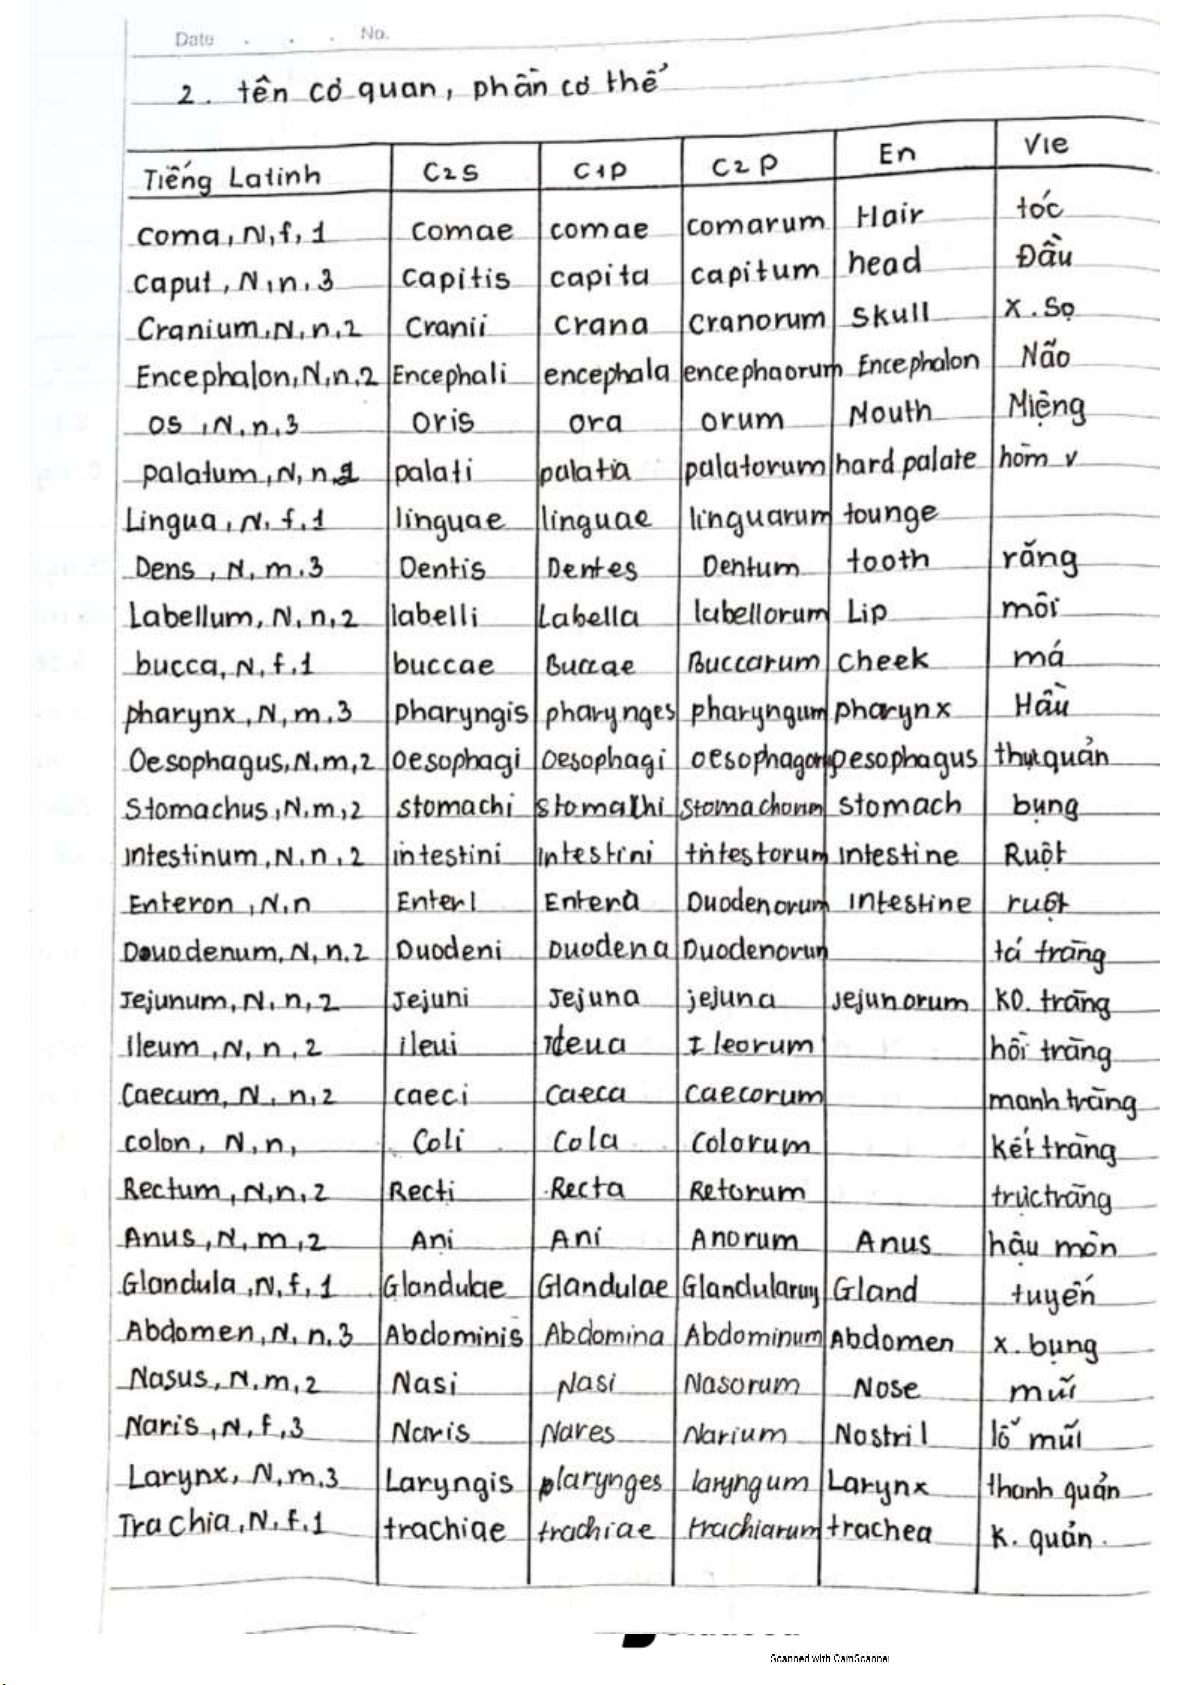 Date . . . No.
2. tên cơ quan, phần cơ thể
Tiếng Latinh C2S C1P C2P En Vie
coma, N, f, 1 comae comae comarum Hair tóc
caput, N, n, 3 capitis capita capitum head Đầu
Cranium, N, n, 2 Cranii Crana Cranorum Skull X. Sọ
Encephalon, N, n, 2 Encephali encephala encephaorum Encephalon Não
os, N, n, 3 oris ora orum Mouth Miệng
palatum, N, n, palati palatia palatorum hard palate hòm v
Lingua, N, f, 1 linguae linguae linguarum tounge
Dens, N, m, 3 Dentis Dentes Dentum tooth răng
Labellum, N, n, 2 labelli Labella labellorum Lip môi
bucca, N, f, 1 buccae Buccae Buccarum cheek má
pharynx, N, m, 3 pharyngis pharynges pharyngum pharynx Hầu
Oesophagus, N, m, 2 oesophagi Oesophagi oesophagorum oesophagus thực quản
Stomachus, N, m, 2 stomachi stomachi stomachorum stomach bụng
intestinum, N, n, 2 intestini intestini intestorum intestine Ruột
Enteron, N, n Enteri Entera Duodenorum intestine ruột
Douodenum, N, n, 2 Duodeni Duodena Duodenorum tá tràng
Jejunum, N, n, 2 Jejuni Jejuna jejuna Jejunorum KO. tràng
ileum, N, n, 2 ileui Ileorum hồi tràng
Caecum, N, n, 2 caeci Caeca caecorum manh tràng
colon, N, n, Coli Cola Colorum kết tràng
Rectum, N, n, 2 Recti Recta Retorum trực tràng
Anus, N, m, 2 Ani Ani Anorum Anus hậu môn
Glandula, N, f, 1 Glandulae Glandulae Glandularum Gland tuyến
Abdomen, N, n, 3 Abdominis Abdomina Abdominum Abdomen x. bụng
Nasus, N, m, 2 Nasi Nasi Nasorum Nose mũi
Naris, N, f, 3 Naris Nares Narium Nostril lỗ mũi
Larynx, N, m, 3 Laryngis plarynges laryngum Larynx thanh quản
Trachia, N, f, 1 trachiae trachiae trachiarum trachea k. quản.
Scanned with CamScanner